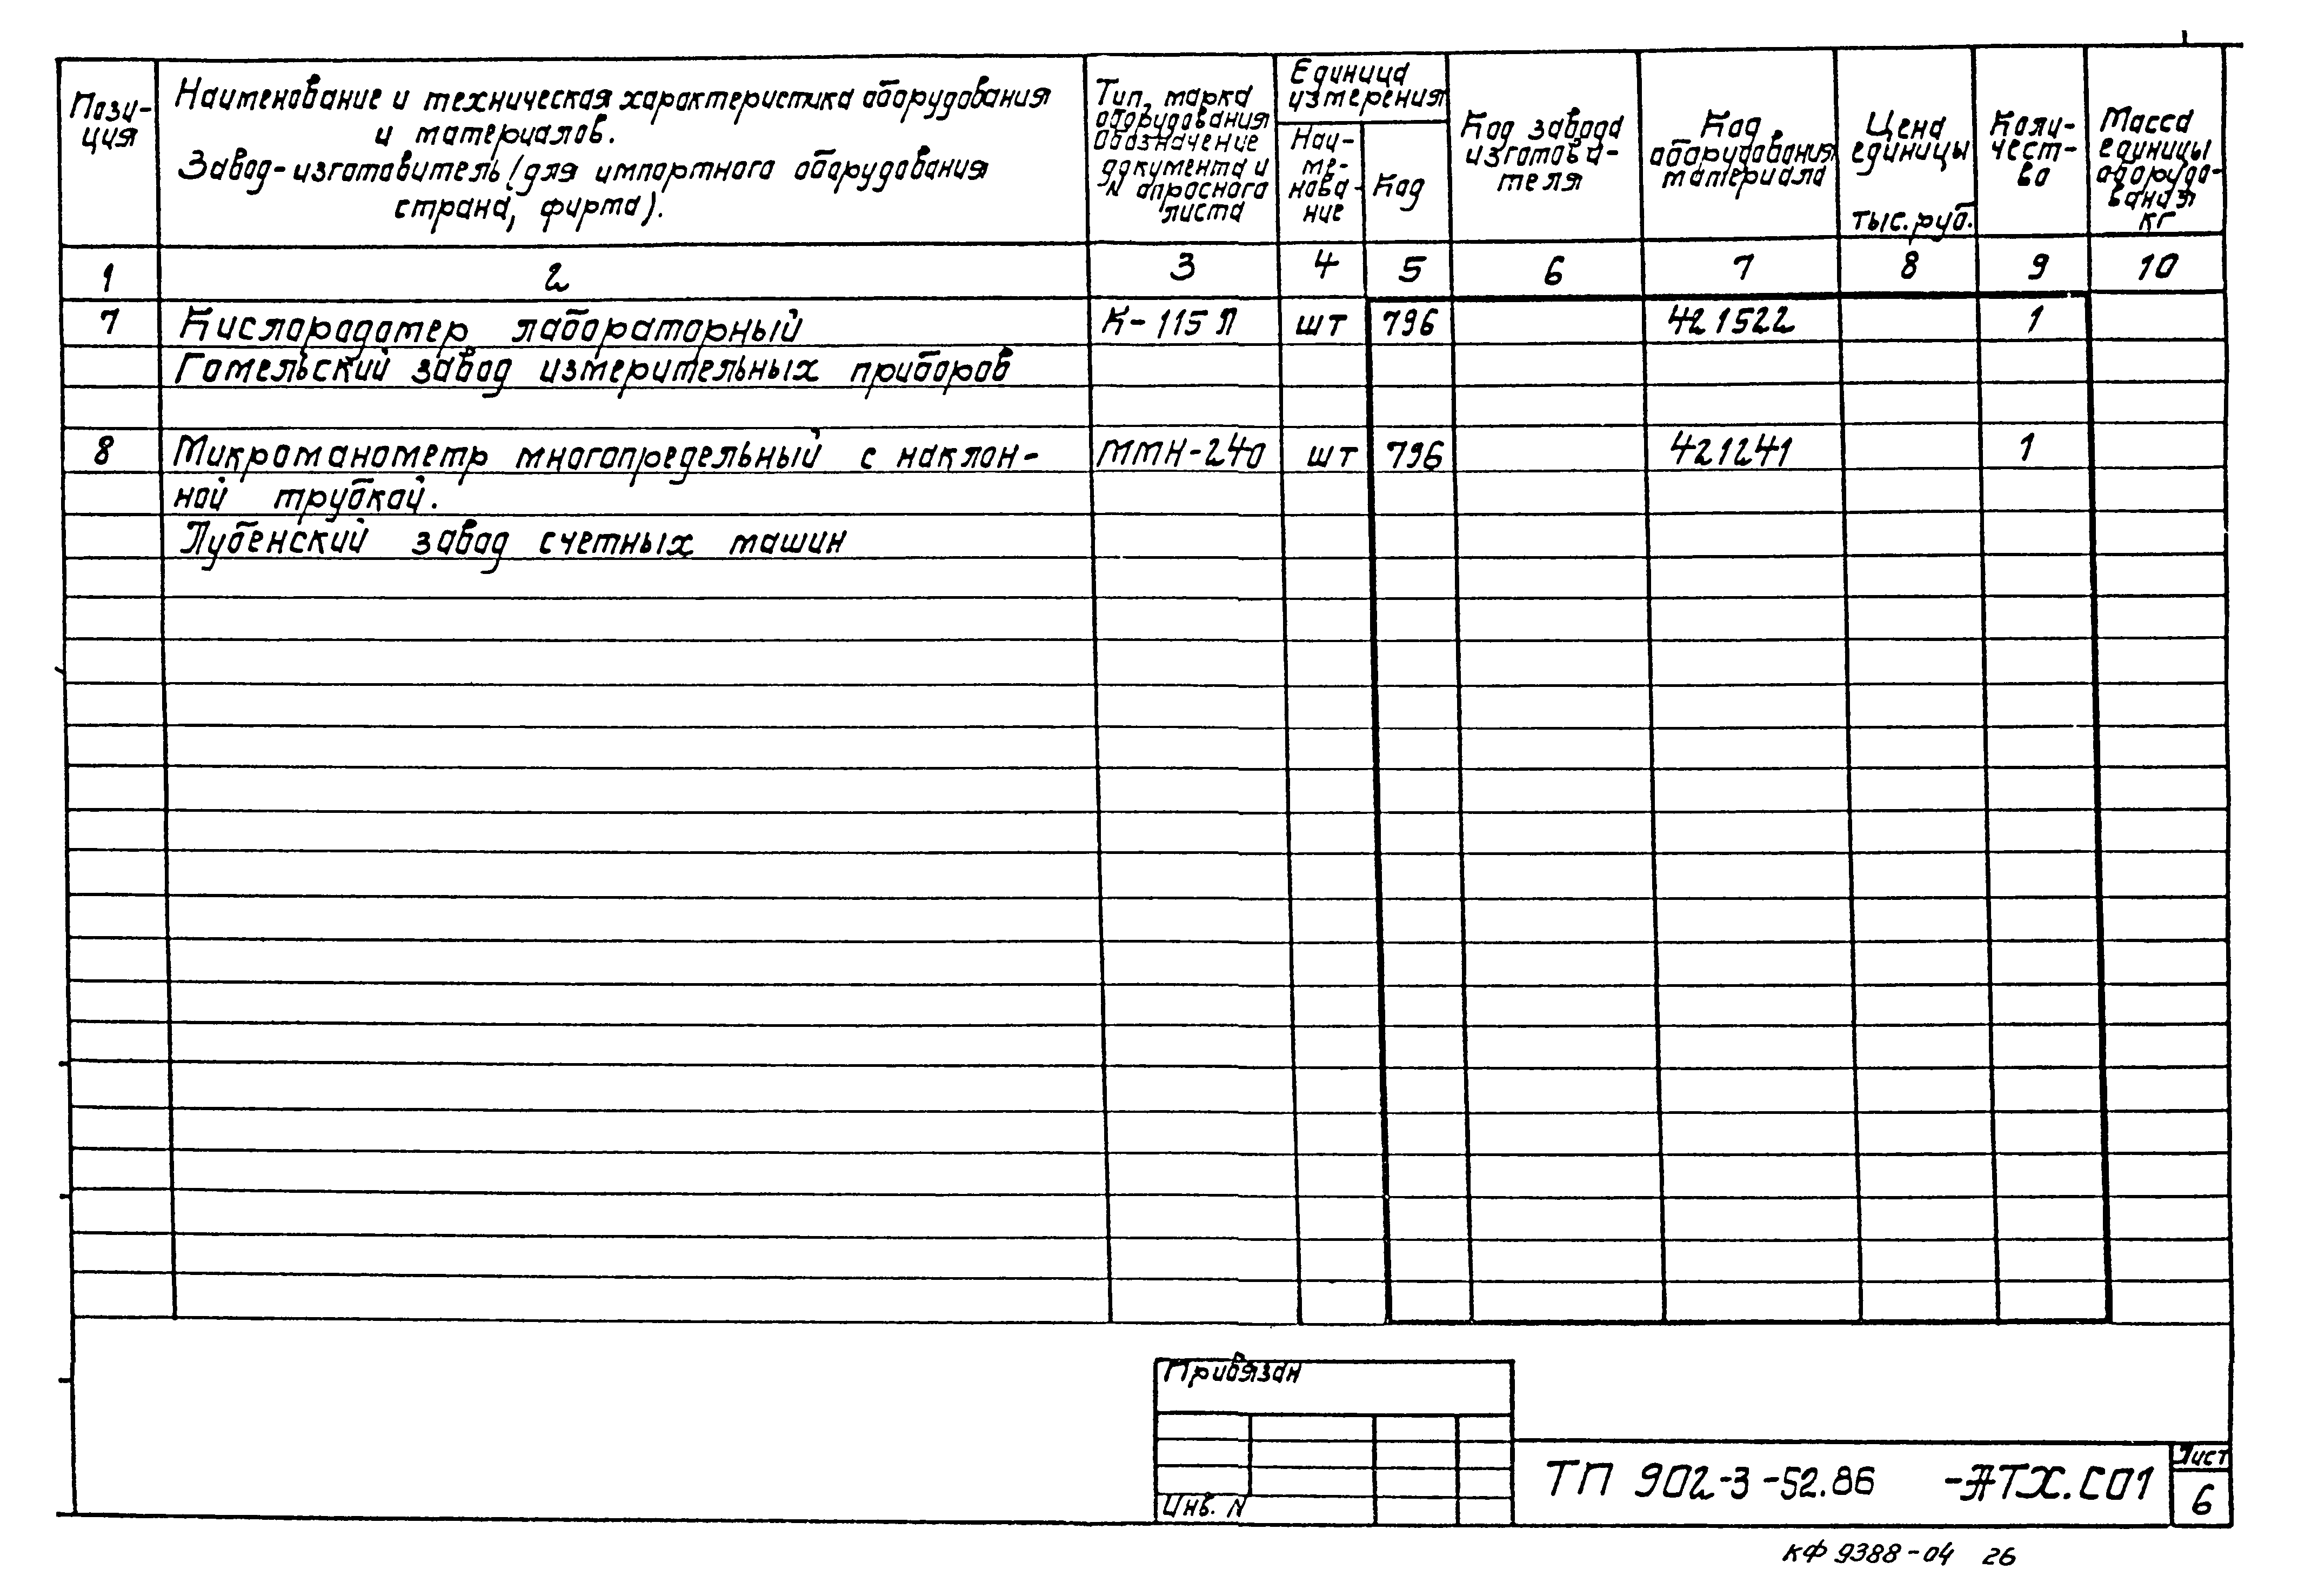 Пози-
ция
Наименование и техническая характеристика оборудования
и материалов.
Завод-изготовитель (для импортного оборудования
страна, фирма).
Тип, марка
оборудования
Обозначение
документа и
N опросного
листа
Единица
измерения
Наи-
ме-
нова-
ние
Код
Код завода
изготови-
теля
Код
оборудования
материала
Цена
единицы
тыс. руб.
Коли-
чест-
во
Масса
единицы
оборудо-
вания
кг
1 2 3 4 5 6 7 8 9 10
7 Кислородомер лабораторный К-115 Л шт 796 421522 1
Гомельский завод измерительных приборов
8 Микроманометр многопредельный с наклон- ММН-240 шт 796 421241 1
ной трубкой.
Лубенский завод счетных машин
Привязан
Инв. N
ТП 902-3-52.86 -АТХ.СО1
Лист
6
КФ 9388-04 26